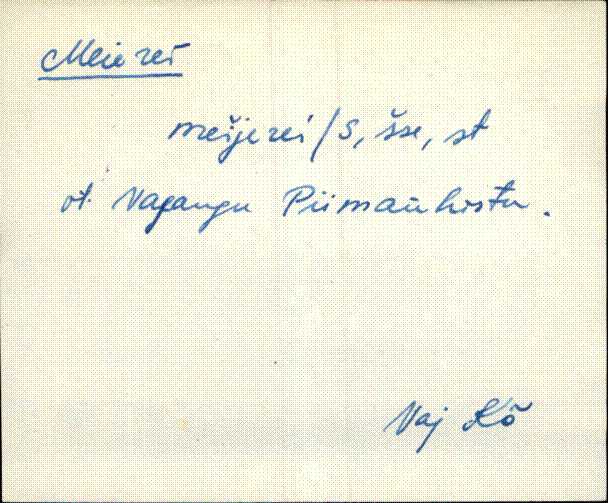 Meierei
meijerei/S, šse, st
vt. Vajangu Piimaühistu.
Vaj Kõ